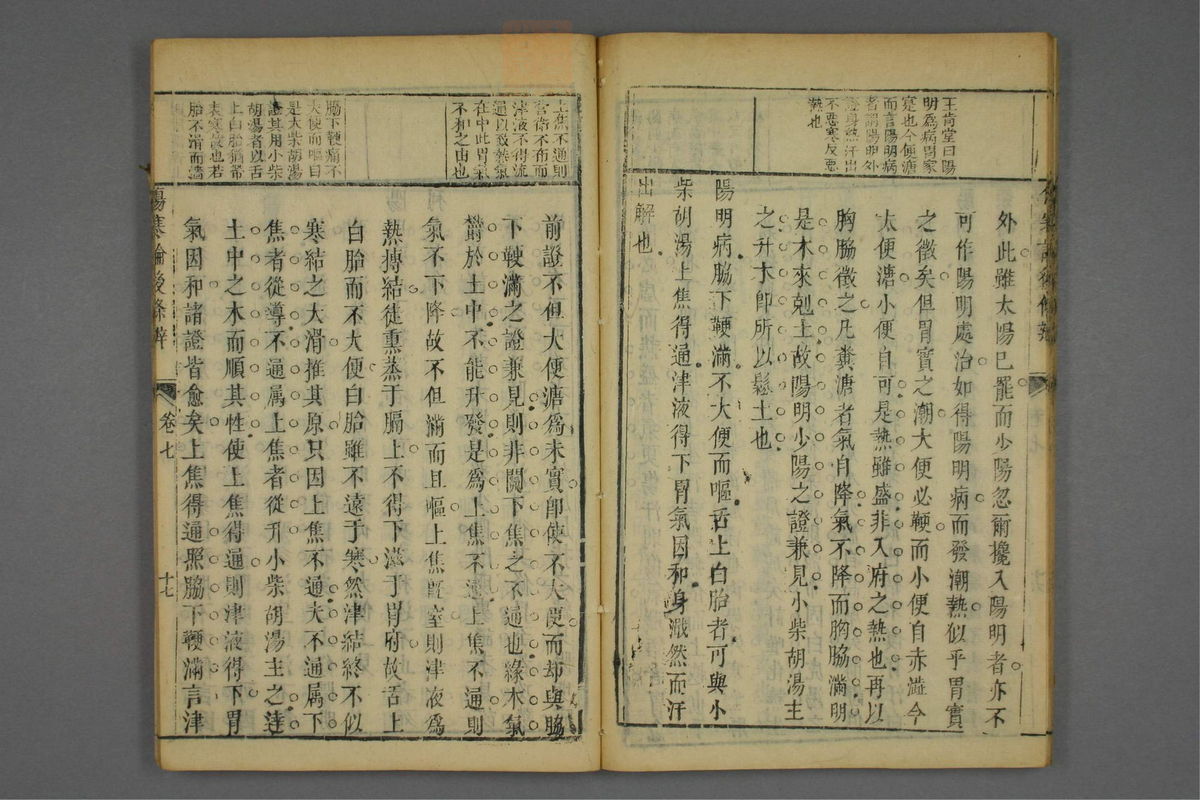 王肯堂曰陽
明爲病胃家
寔也今便溏
而言陽明病
者謂陽明外
證身熱汗出
不惡寒反惡
熱也
外此雖太陽已罷而少陽忽爾攙入陽明者亦不
可作陽明處治如得陽明病而發潮熱似乎胃實
之徵矣但胃實之潮大便必鞕而小便自赤澁今
大便溏小便自可是熱雖盛非入府之熱也再以
胸脇徵之凡糞溏者氣自降氣不降而胸脇滿明
是木來剋土故陽明少陽之證兼見小柴胡湯主
之升木卽所以鬆土也
陽明病脇下鞕滿不大便而嘔舌上白胎者可與小
柴胡湯上焦得通津液得下胃氣因和身濈然而汗
出解也
上焦不通則
營衛不布而
津液不得流
通以致熱氣
在中此胃氣
不和之由也
脇下鞕痛不
大便而嘔自
是大柴胡湯
證其用小柴
胡湯者以舌
上白胎猶帶
表寒故也若
胎不滑而濇
傷寒論後條辨
卷七
十七
前證不但大便溏爲未實卽使不大便而却與脇
下鞕滿之證兼見則非關下焦之不通也緣木氣
鬱於土中不能升發是爲上焦不通上焦不通則
氣不下降故不但滿而且嘔上焦旣窒則津液爲
熱搏結徒熏蒸于膈上不得下滋于胃府故舌上
白胎而不大便白胎雖不遠于寒然津結終不似
寒結之大滑推其原只因上焦不通夫不通属下
焦者從導不通属上焦者從升小柴胡湯主之達
土中之木而順其性使上焦得通則津液得下胃
氣因和諸證皆愈矣上焦得通照脇下鞕滿言津